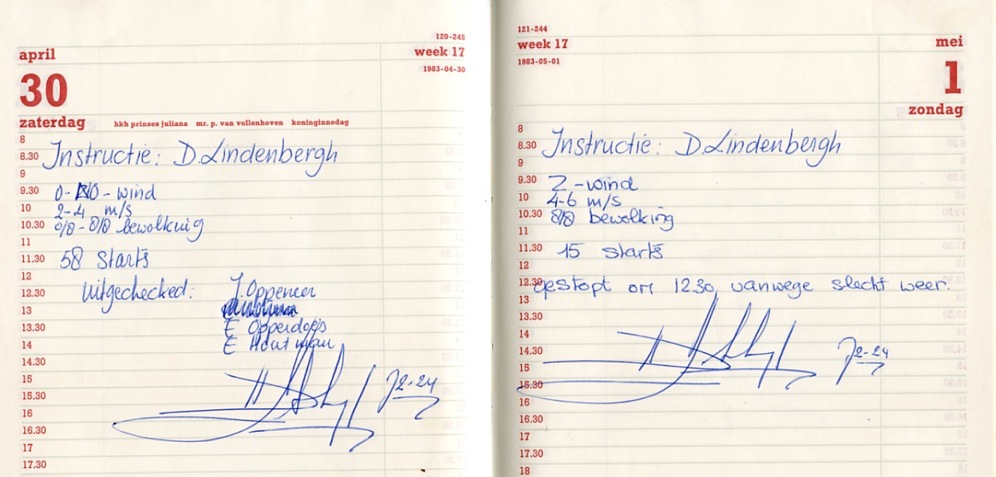 120-245
april
week 17
1983-04-30
30
zaterdag
hkh prinses juliana mr. p. van vollenhoven koninginnedag
8
8.30 Instructie: D. Lindenbergh
9
9.30 0-NO-wind
10 2-4 m/s
10.30 0/8-8/8 bewolking
11
11.30 58 starts
12
12.30 Uitgechecked: J. Oppeneer
13
13.30 E Opperdoes
14 E Houtman
14.30
15
15.30 J2-24
16
16.30
17
17.30
121-244
week 17
mei
1983-05-01
1
zondag
8
8.30 Instructie: D. Lindenbergh
9
9.30 Z-wind
10 4-6 m/s
10.30 8/8 bewolking
11
11.30 15 starts
12
12.30 gestopt om 12.30, vanwege slecht weer.
13
13.30
14
14.30 J2-24
15
15.30
16
16.30
17
17.30
18